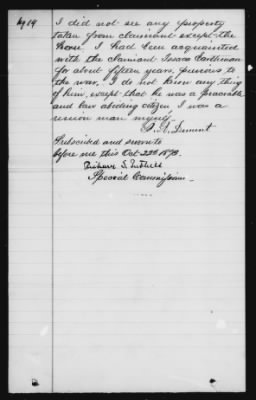 pg 19
I did not see any property
taken from claimant except the
horse. I had been acquainted
with the claimant Isaac
for about fifteen years, previous to
the war, I do not know any thing
of him, except that he was a peaceable
and law abiding citizen, I was a
union man myself.
Subscribed and sworn to
before me this Oct 1873.
Special Commissioner